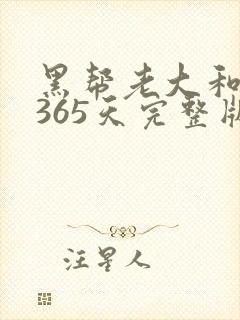 黑帮老大和
365天完整版
汪星人